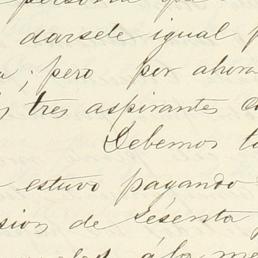 persona que
darsele igual
; pero por ahora
tres aspirantes
Debemos
estuvo pagando
sion de sesenta
á los me